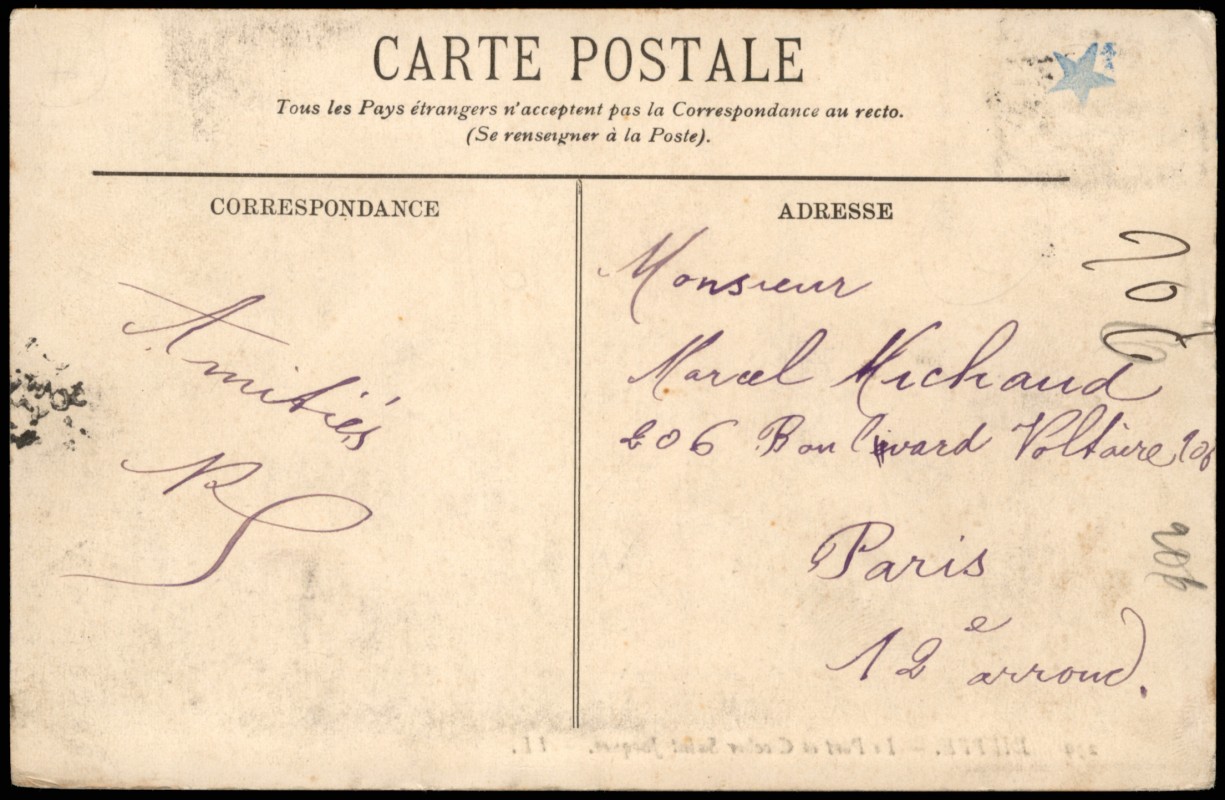 CARTE POSTALE
Tous les Pays étrangers n'acceptent pas la Correspondance au recto.
(Se renseigner à la Poste).
CORRESPONDANCE
Amitiés
ADRESSE
Monsieur
Marcel Michaud
206 Boulevard Voltaire 206
Paris
12e arrond.
206
206